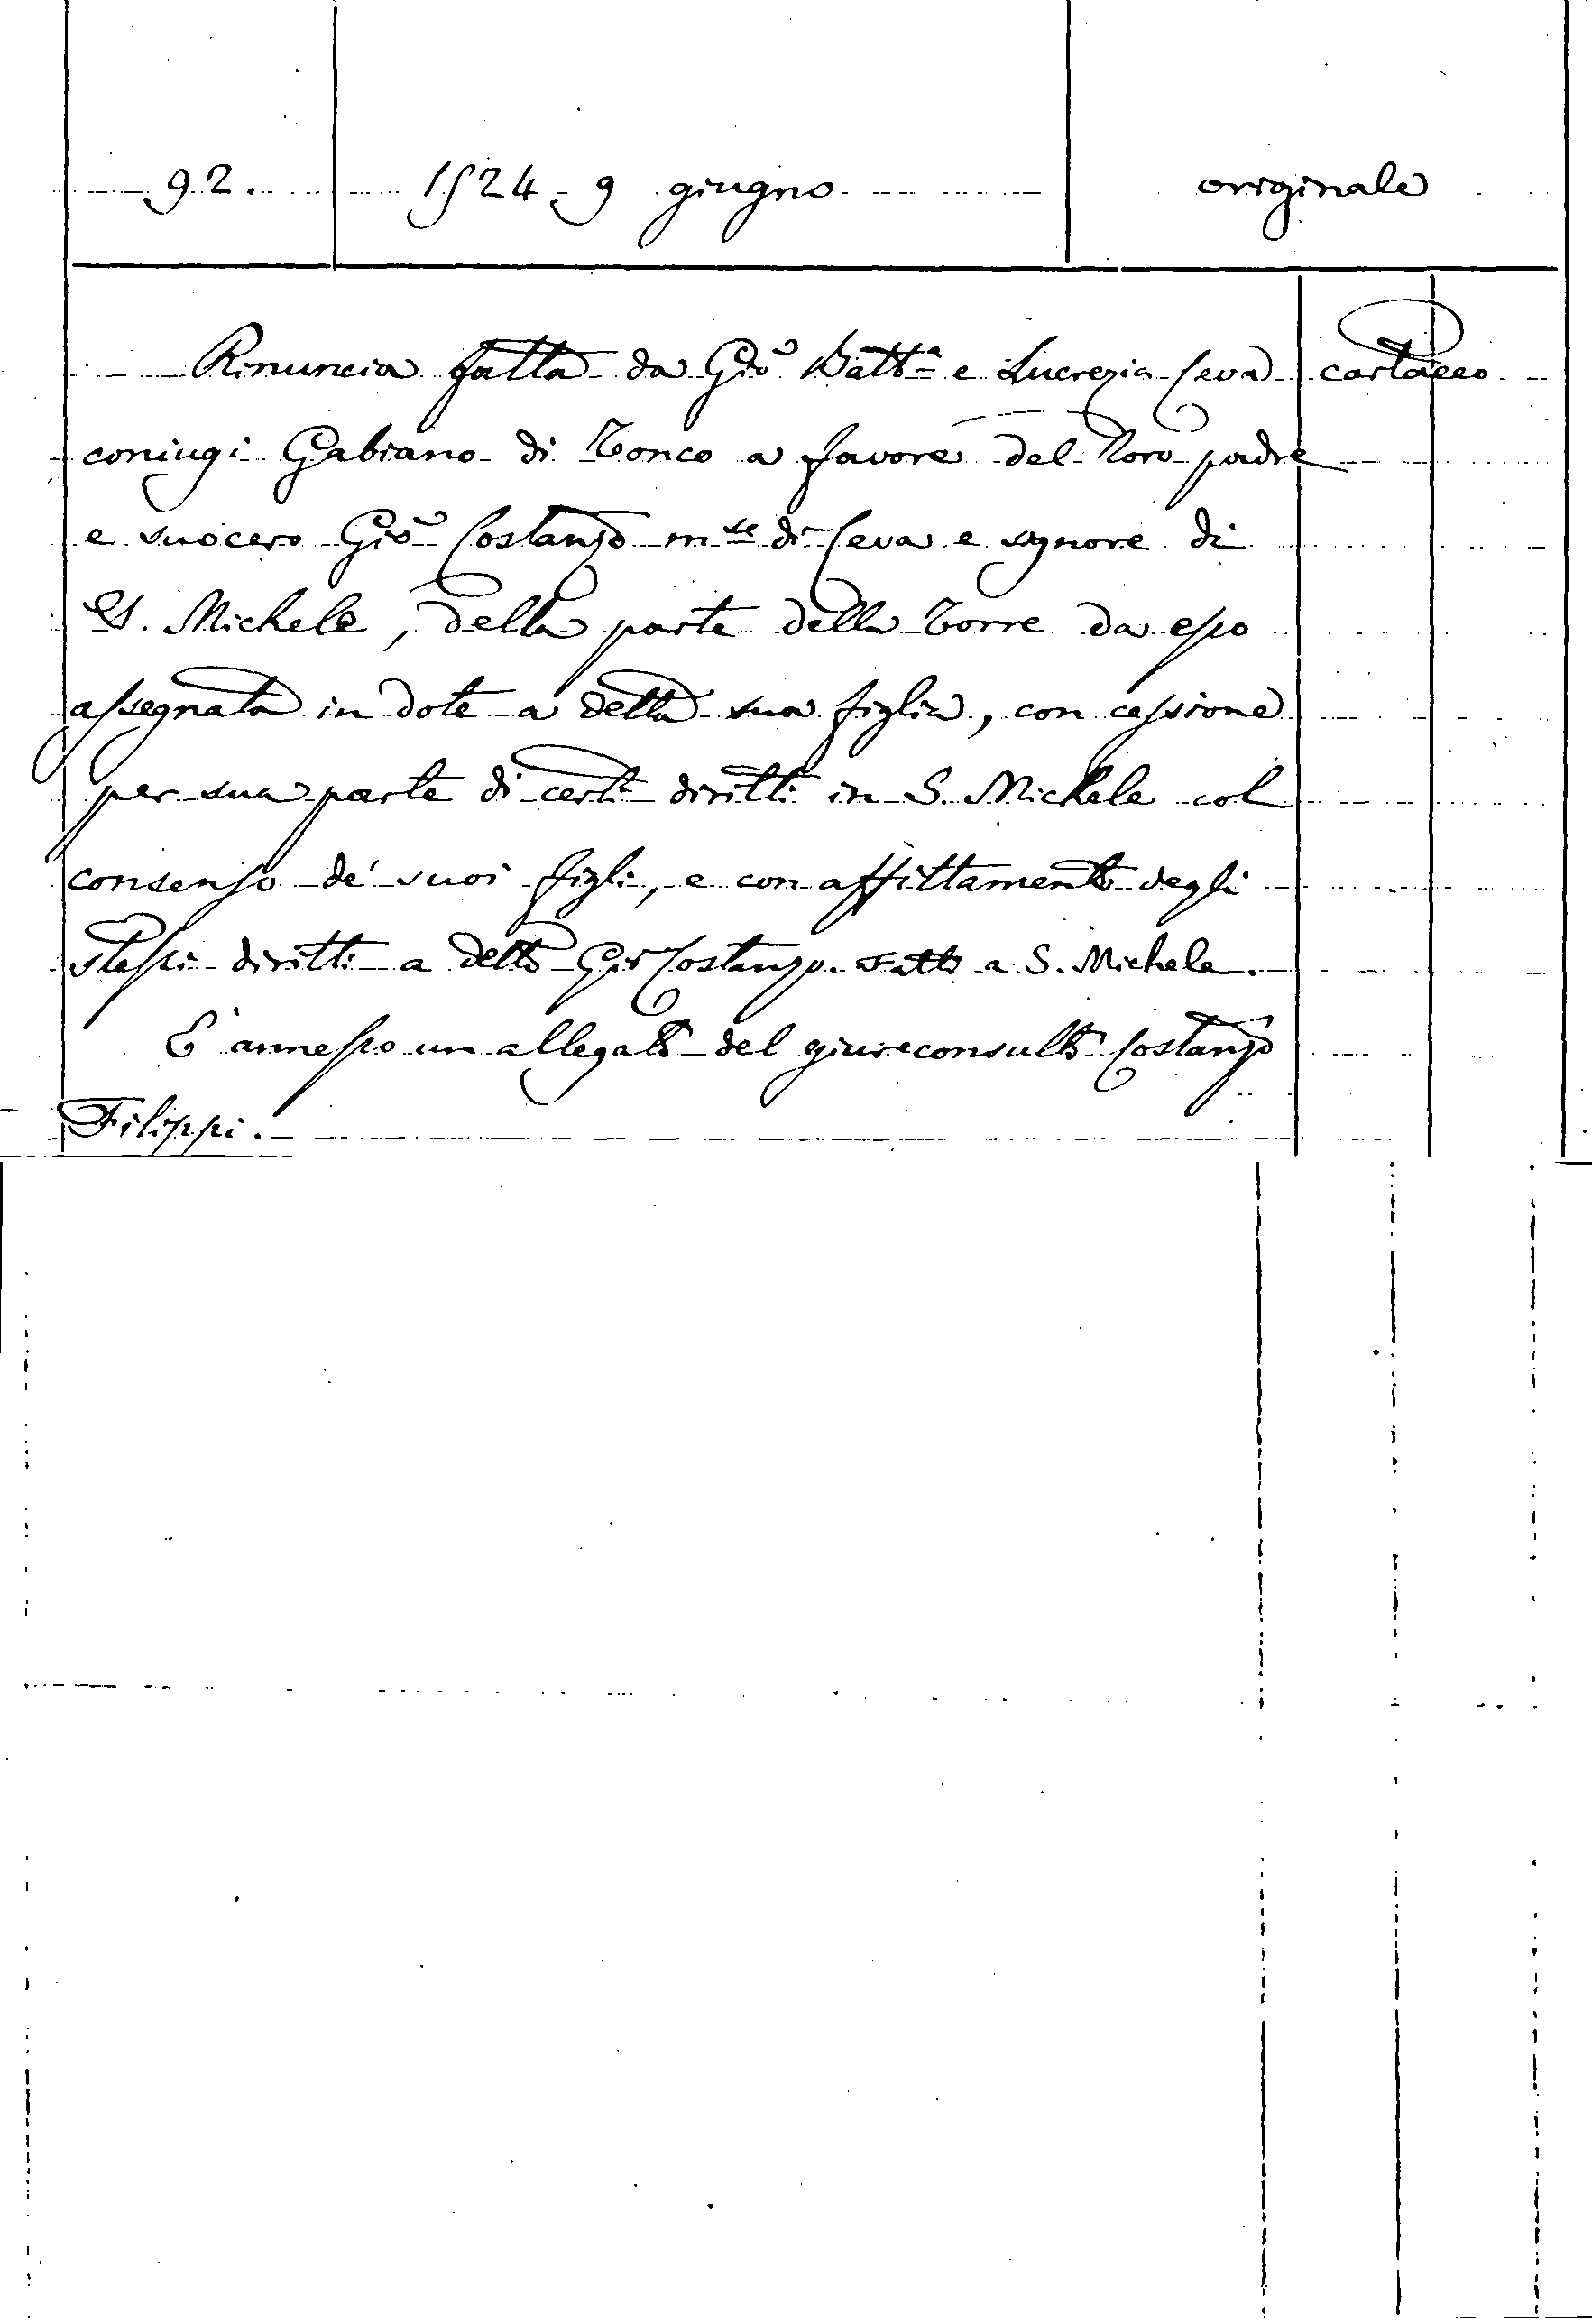 92. 1524 - 9 giugno originale
Rinuncia fatta da Gio Batta e Lucrezia Ceva cartaceo
coniugi Gabiano di Tonco a favore del loro padre
e suocero Gio Costanzo mse di Ceva e signore di
S. Michele, della parte della Torre da esso
assegnata in dote a detta sua figlia, con cessione
per sua parte di certi diritti in S. Michele col
consenso de' suoi figli, e con affittamento degli
stessi diritti a detto Gio Costanzo. Fatto a S. Michele.
È annesso un allegato del giureconsulto Costanzo
Filippi.